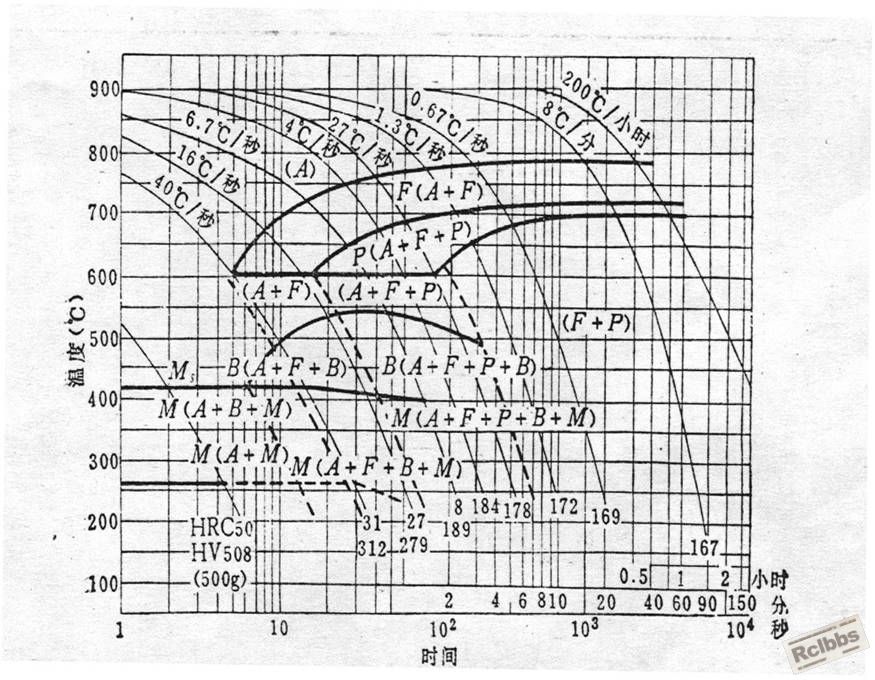 900
800
700
600
500
400
300
200
100
温度(℃)
200℃/小时
8℃/分
0.67℃/秒
1.3℃/秒
27℃/秒
4℃/秒
6.7℃/秒
16℃/秒
40℃/秒
(A)
F(A+F)
P(A+F+P)
(A+F)
(A+F+P)
(F+P)
Ms
B(A+F+B)
B(A+F+P+B)
M(A+B+M)
M(A+F+P+B+M)
M(A+M)
M(A+F+B+M)
HRC50
HV508
(500g)
31
312
27
279
8
189
184
178
172
169
167
0.5 1 2 小时
2 4 6 8 10 20 40 60 90 150 分
1 10 10² 10³ 10⁴ 秒
时间
Rclbbs